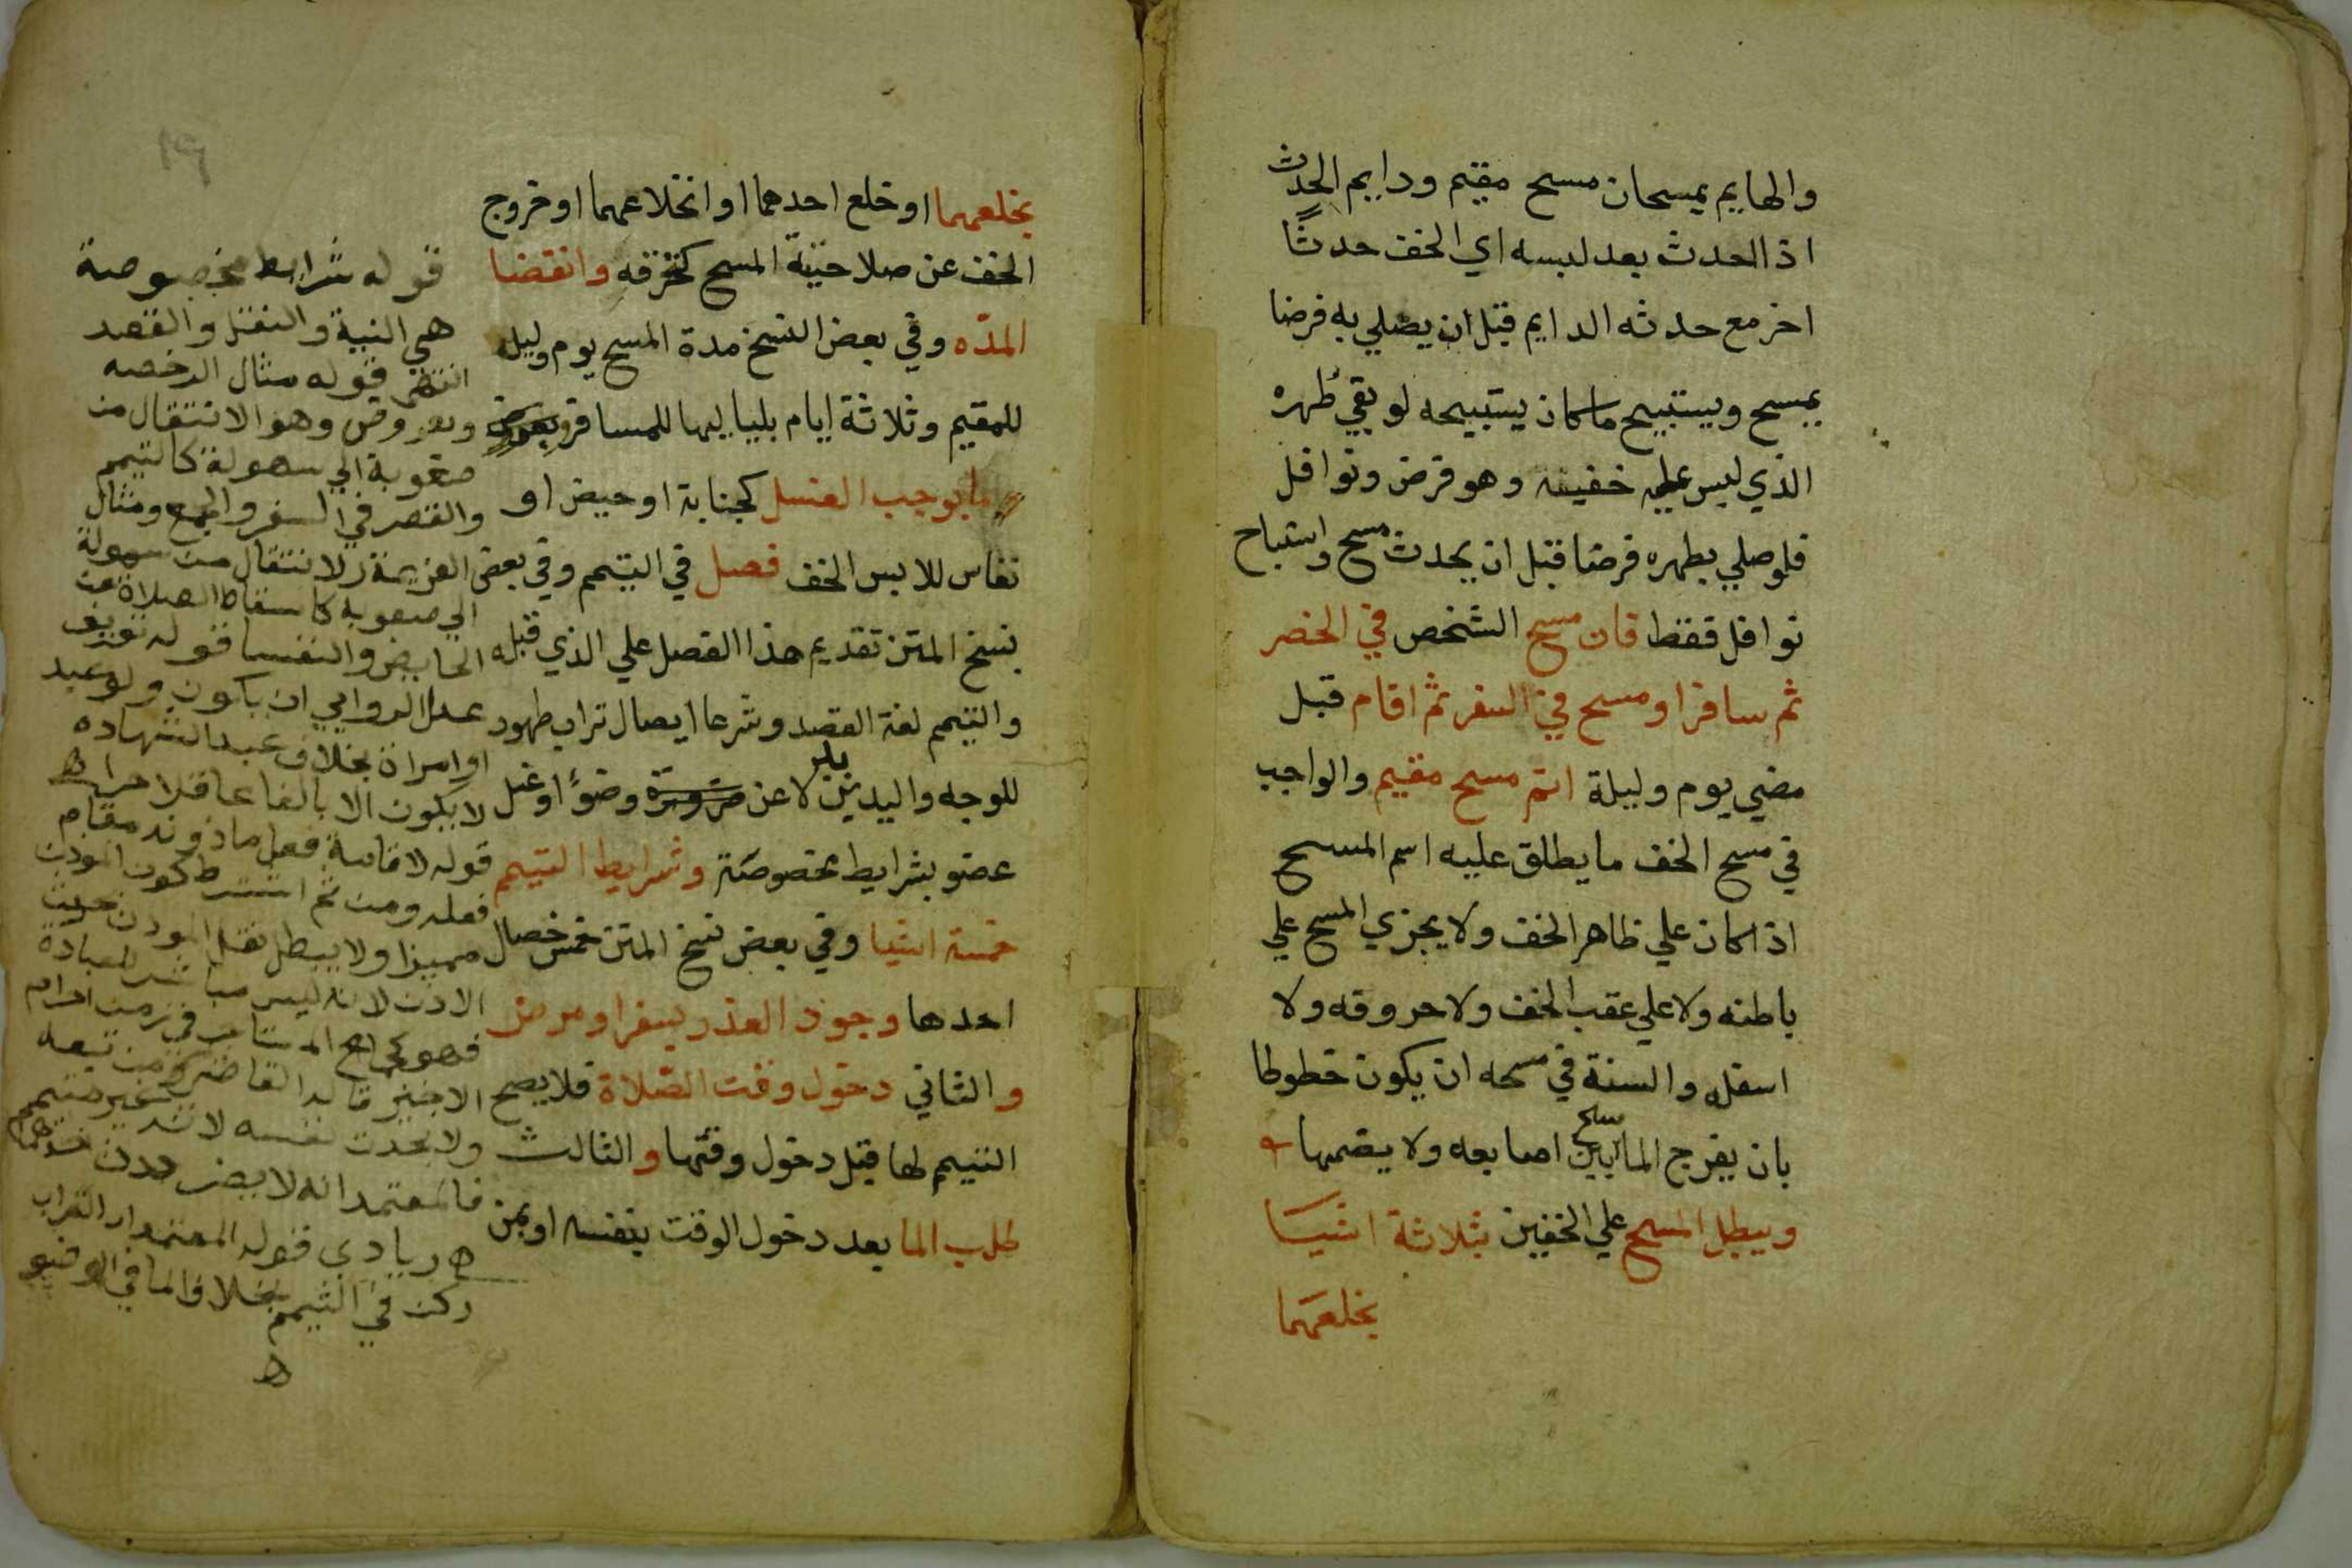 والهايم يمسحان مسح مقيم ودايم الحدث
اذا احدث بعد لبسه اي الخف حدثًا
اخر مع حدثه الدايم قبل ان يصلي به فرضا
يمسح ويستبيح ما كان يستبيحه لو بقي طهره
الذي لبس عليه خفيه وهو فرض ونوافل
فلو صلي بطهره فرضا قبل ان يحدث مسح واستباح
نوافل فقط فان مسح الشخص في الحضر
ثم سافر او مسح في السفر ثم اقام قبل
مضي يوم وليلة اتم مسح مقيم والواجب
في مسح الخف ما يطلق عليه اسم المسح
اذا كان علي ظاهر الخف ولا يجزي المسح علي
باطنه ولا علي عقب الخف ولا حروفه ولا
اسفله والسنة في مسحه ان يكون خطوطا
بان يفرج الماسح بين اصابعه ولا يضمها
ويبطل المسح علي الخفين بثلاثة اشيا
بخلعهما
بخلعهما او خلع احدهما او انخلاعهما او خروج
الخف عن صلاحية المسح كتخرقه وانقضا
المده وفي بعض النسخ مدة المسح يوم وليله
للمقيم وثلاثة ايام بلياليها للمسافر وبعروض
ما يوجب الغسل كجنابة او حيض او
نفاس للابس الخف فصل في التيمم وفي بعض
نسخ المتن تقديم هذا الفصل علي الذي قبله
والتيمم لغة القصد وشرعا ايصال تراب طهور
للوجه واليدين بدلا عن وضوء او غسل
عضو بشرايط مخصوصة وشرايط التيمم
خمسة اشيا وفي بعض نسخ المتن خمس خصال
احدها وجود العذر بسفر او مرض
والثاني دخول وقت الصلاة فلا يصح
التيمم لها قبل دخول وقتها والثالث
طلب الما بعد دخول الوقت بنفسه او بمن
١٩
قوله شرايط مخصوصة
هي النية والنقل والقصد
انتهى قوله مثال الرخصه
وبعروض وهو الانتقال من
صعوبة الي سهولة كالتيمم
والقصر في السفر والجمع ومثال
العزيمة الانتقال من سهولة
الي صعوبة كاسقاط الصلاة عن
الحايض والنفسا قوله
عدل الروايي ان يكون ولو عبد
او امراة بخلاف عبد الشهاده
لا يكون الا بالغا عاقلا حرا اه
قوله لاقامة فعل ماذونه مقام
فعله ومن ثم اشترط كون الموذن
مميزا ولا يبطل نقل الموذن
الاذن لانه ليس مباشر للعبادة
ولا يحدث نفسه لانه غير متيمم
فالمعتمد انه لا يضر
اه زيادي قوله المعتمد ان التراب
ركن في التيمم بخلاف الما في الوضو
اه